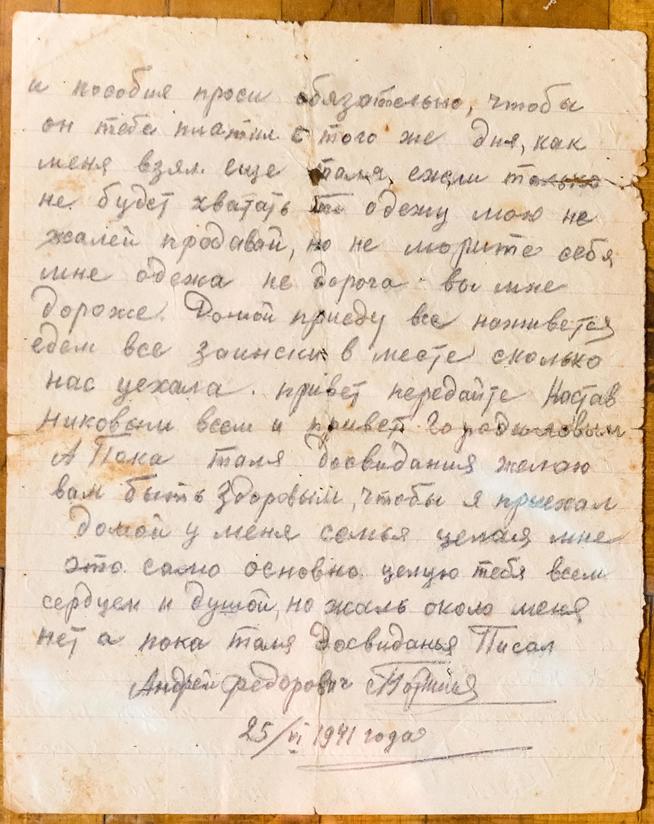 и пособия проси обязательно, чтобы
он тебе платил с того же дня, как
меня взял. еще таля, ежели только
не будет хватать то одежу мою не
жалей продавай, но не морите себя
мне одежа не дорога вы мне
дороже. Домой приеду все наживется
едем все заински в месте сколько
нас уехала. привет передайте Настав
никовым всем и привет
А Пока таля Досвидания желаю
вам быть здоровым, чтобы я приехал
домой у меня семья целая мне
это само основно целую тебя всем
сердцем и душой, но жаль около меня
нет а пока таля Досвиданья Писал
Андрей Федорович
25/VI 1941 года